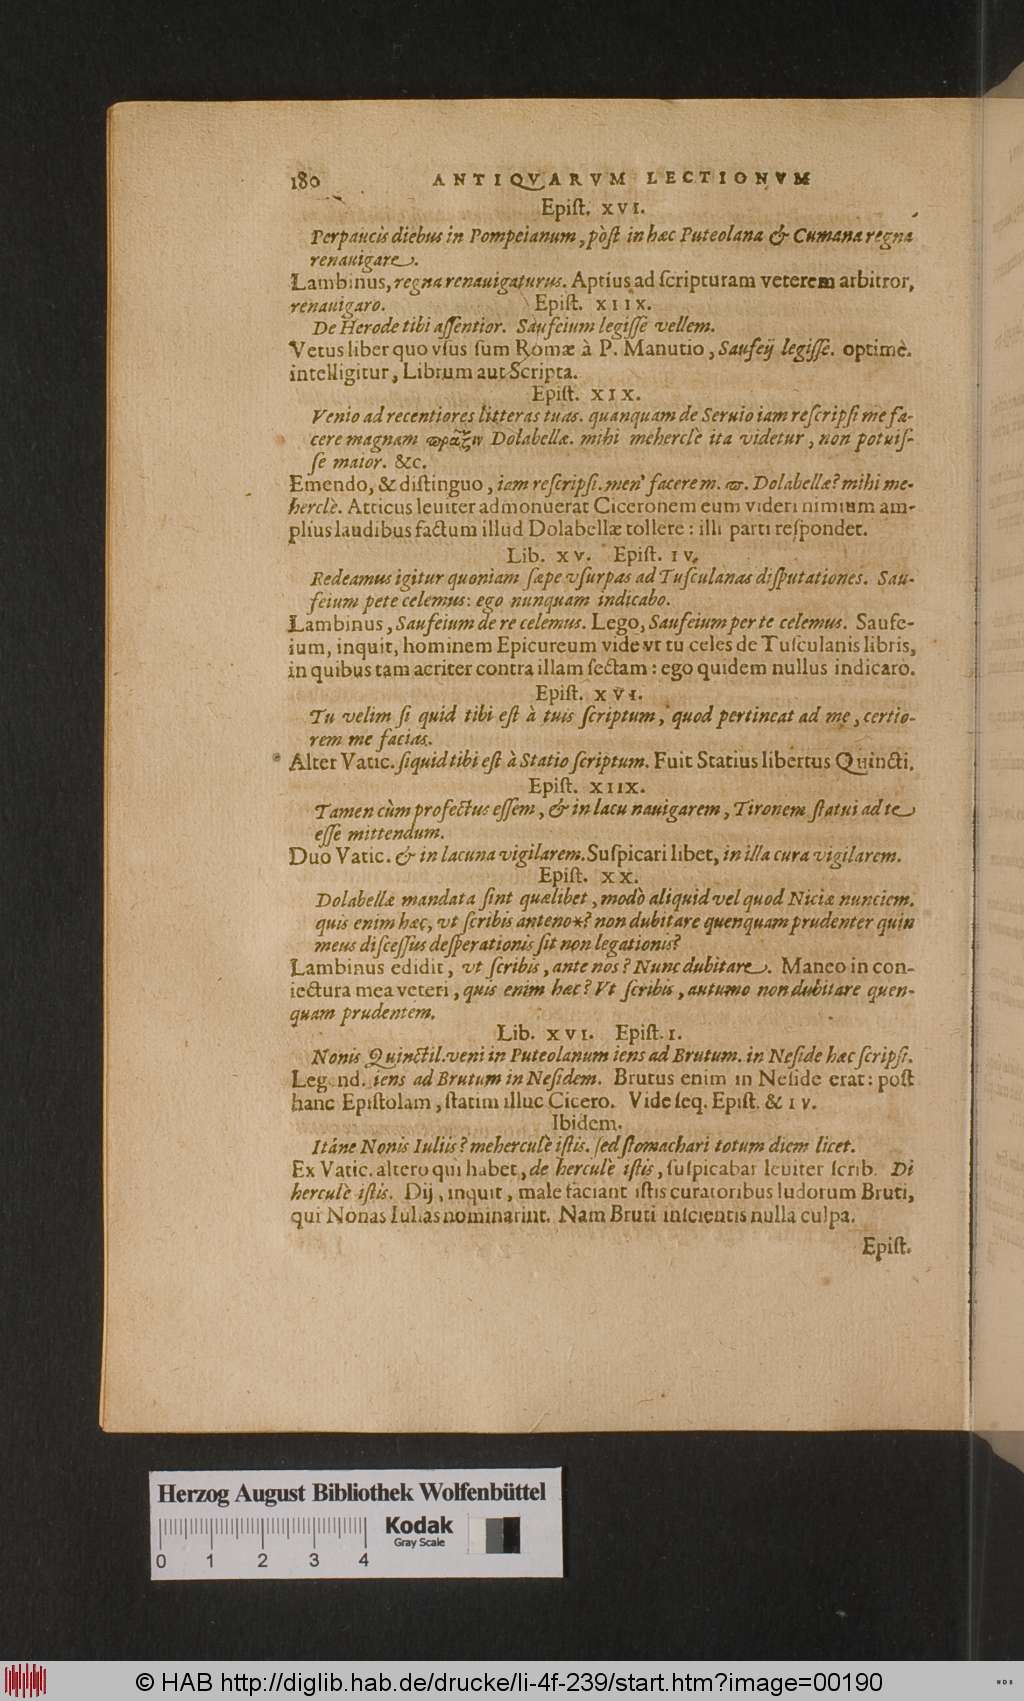 180 ANTIQVARVM LECTIONVM
Epiſt. XVI.
Perpaucis diebus in Pompeianum, pòſt in hæc Puteolana & Cumana regna
renauigare.
Lambinus, regna renauigaturus. Aptius ad ſcripturam veterem arbitror,
renauigaro. Epiſt. XIIX.
De Herode tibi aſſentior. Saufeium legiſſe vellem.
Vetus liber quo vſus ſum Romæ à P. Manutio, Saufeij legiſſe. optimè.
intelligitur, Librum aut Scripta.
Epiſt. XIX.
Venio ad recentiores litteras tuas. quanquam de Seruio iam reſcripſi me fa-
cere magnam ϖρᾶξιν Dolabellæ. mihi meherclè ita videtur, non potuiſ-
ſe maior. &c.
Emendo, & diſtinguo, iam reſcripſi. men' facere m. ϖ. Dolabellæ? mihi me-
herclè. Atticus leuiter admonuerat Ciceronem eum videri nimium am-
plius laudibus factum illud Dolabellæ tollere: illi parti reſpondet.
Lib. XV. Epiſt. IV.
Redeamus igitur quoniam ſæpe vſurpas ad Tuſculanas diſputationes. Sau-
feium pete celemus: ego nunquam indicabo.
Lambinus, Saufeium de re celemus. Lego, Saufeium per te celemus. Saufe-
ium, inquit, hominem Epicureum vide vt tu celes de Tuſculanis libris,
in quibus tam acriter contra illam ſectam: ego quidem nullus indicaro.
Epiſt. XVI.
Tu velim ſi quid tibi eſt à tuis ſcriptum, quod pertineat ad me, certio-
rem me facias.
* Alter Vatic. ſiquid tibi eſt à Statio ſcriptum. Fuit Statius libertus Quincti.
Epiſt. XIIX.
Tamen cùm profectus eſſem, & in lacu nauigarem, Tironem ſtatui ad te
eſſe mittendum.
Duo Vatic. & in lacuna vigilarem. Suſpicari libet, in illa cura vigilarem.
Epiſt. XX.
Dolabellæ mandata ſint quælibet, modò aliquid vel quod Niciæ nunciem.
quis enim hæc, vt ſcribis anteno*? non dubitare quenquam prudenter quin
meus diſceſſus deſperationis ſit non legationis?
Lambinus edidit, vt ſcribis, ante nos? Nunc dubitare. Maneo in con-
iectura mea veteri, quis enim hæc? Vt ſcribis, autumo non dubitare quen-
quam prudentem.
Lib. XVI. Epiſt. I.
Nonis Quinctil. veni in Puteolanum iens ad Brutum. in Neſide hæc ſcripſi.
Legend. iens ad Brutum in Neſidem. Brutus enim in Neſide erat: poſt
hanc Epiſtolam, ſtatim illuc Cicero. Vide ſeq. Epiſt. & IV.
Ibidem.
Itáne Nonis Iuliis? meherculè iſtis. ſed ſtomachari totum diem licet.
Ex Vatic. altero qui habet, de herculè iſtis, ſuſpicabar leuiter ſcrib. Di
herculè iſtis. Dij, inquit, male faciant iſtis curatoribus ludorum Bruti,
qui Nonas Iulias nominarint. Nam Bruti inſcientis nulla culpa.
Epiſt.
Herzog August Bibliothek Wolfenbüttel
Kodak
Gray Scale
0 1 2 3 4
© HAB http://diglib.hab.de/drucke/li-4f-239/start.htm?image=00190